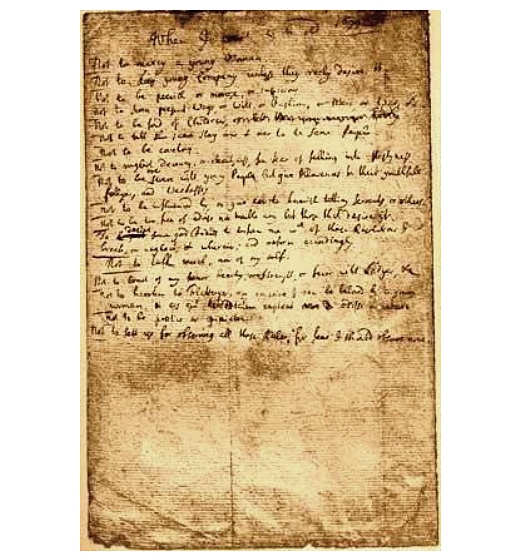 When I come to be old. 1699.
Not to marry a young Woman.
Not to keep young Company unless they really desire it.
Not to be peevish or morose, or suspicious
Not to scorn present Ways, or Wits, or Fashions, or Men, or War, &c
Not to be fond of Children,
Not to tell the same story over & over to the same People
Not to be covetous
Not to neglect decency, or cleanlyness, for fear of falling into Nastyness
Not to be over severe with young People, but give Allowances for their youthfull
follyes, and Weaknesses
Not to be influenced by, or give ear to knavish tatling Servants, or others.
Not to be too free of advise nor trouble any but those that desire it.
To desire some good Friends to inform me wch of these Resolutions I
break, or neglect, & wherein; and reform accordingly.
Not to talk much, nor of my self.
Not to boast of my former beauty, or strength, or favor with Ladyes, &c
Not to hearken to Flatteryes, nor conceive I can be beloved by a young
woman.
Not to be positive or opiniative
Not to sett up for observing all these Rules, for fear I should observe none.